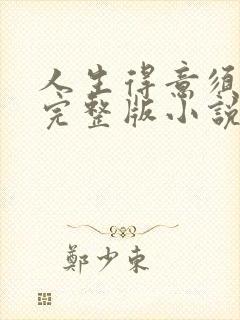 人生得意須
完整版小説
鄭少東